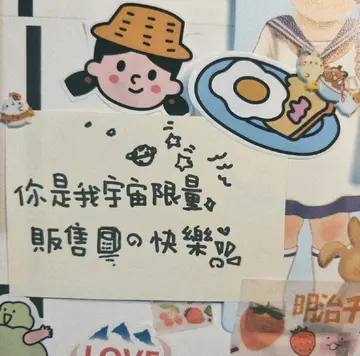 你是我宇宙限量
販售圓の快樂
明治チ
LOVE